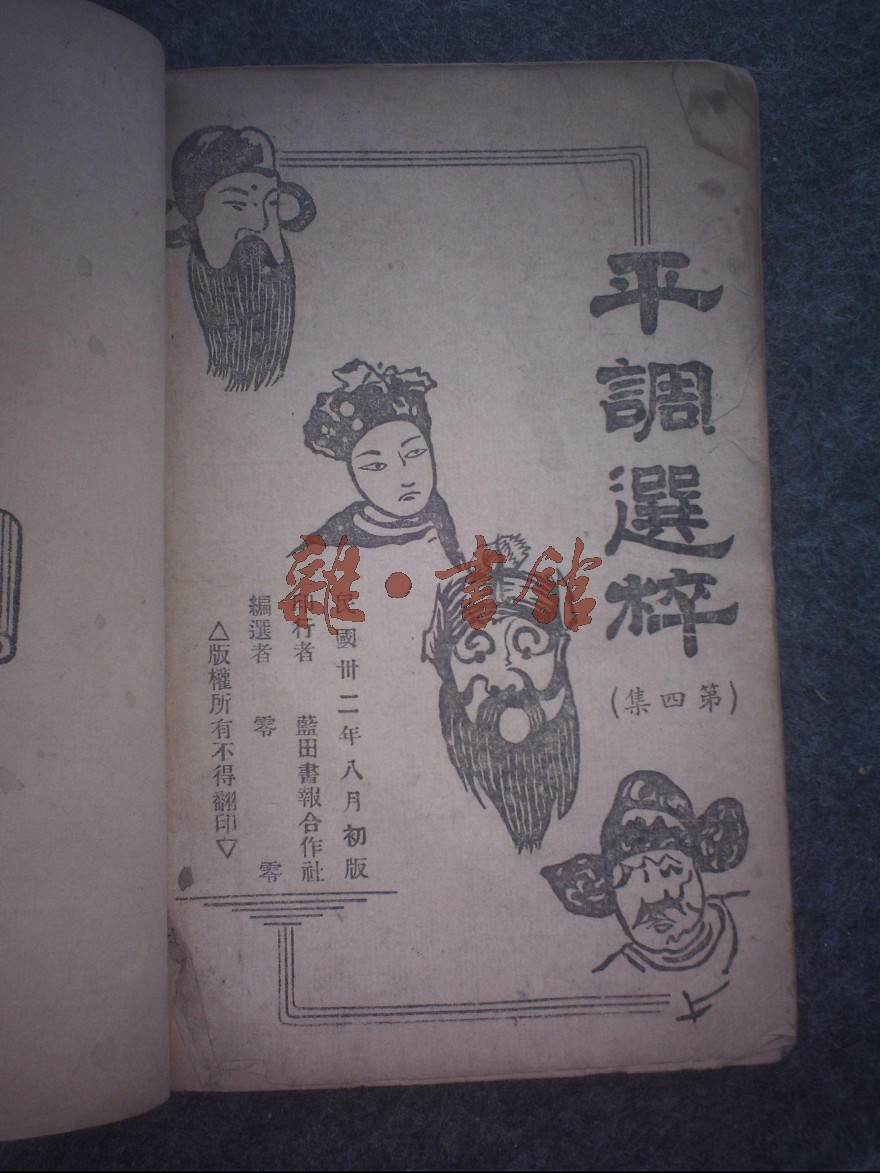 平調選粹
(第四集)
民國卅二年八月初版
印行者 藍田書報合作社
編選者 零零
△版權所有不得翻印▽
雜·書館